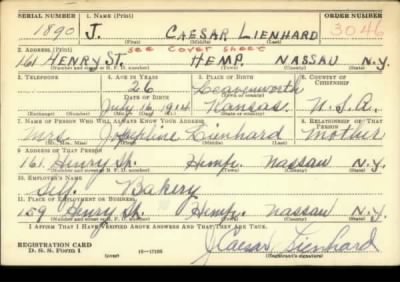 SERIAL NUMBER 1. NAME (Print) ORDER NUMBER
1890 J. CAESAR LIENHARD 3046
(First) (Middle) (Last)
2. ADDRESS (Print) see cover sheet
161 HENRY ST. HEMP. NASSAU N.Y.
(Number and street or R. F. D. number) (Town) (County) (State)
3. TELEPHONE 4. AGE IN YEARS 5. PLACE OF BIRTH 6. COUNTRY OF CITIZENSHIP
26 Leavenworth
DATE OF BIRTH (Town or county)
July 16, 1914 Kansas. U.S.A.
(Exchange) (Number) (Mo.) (Day) (Yr.) (State or country)
7. NAME OF PERSON WHO WILL ALWAYS KNOW YOUR ADDRESS 8. RELATIONSHIP OF THAT PERSON
Mrs. Josephine Lienhard Mother
(Mr., Mrs., Miss) (First) (Middle) (Last)
9. ADDRESS OF THAT PERSON
161 Henry St. Hemp. Nassau N.Y.
(Number and street or R. F. D. number) (Town) (County) (State)
10. EMPLOYER'S NAME
Self. Bakery
11. PLACE OF EMPLOYMENT OR BUSINESS
159 Henry St. Hemp. Nassau N.Y.
(Number and street or R. F. D. number) (Town) (County) (State)
I AFFIRM THAT I HAVE VERIFIED ABOVE ANSWERS AND THAT THEY ARE TRUE.
REGISTRATION CARD J. Caesar Lienhard
D. S. S. Form 1 (over) (Registrant's signature)